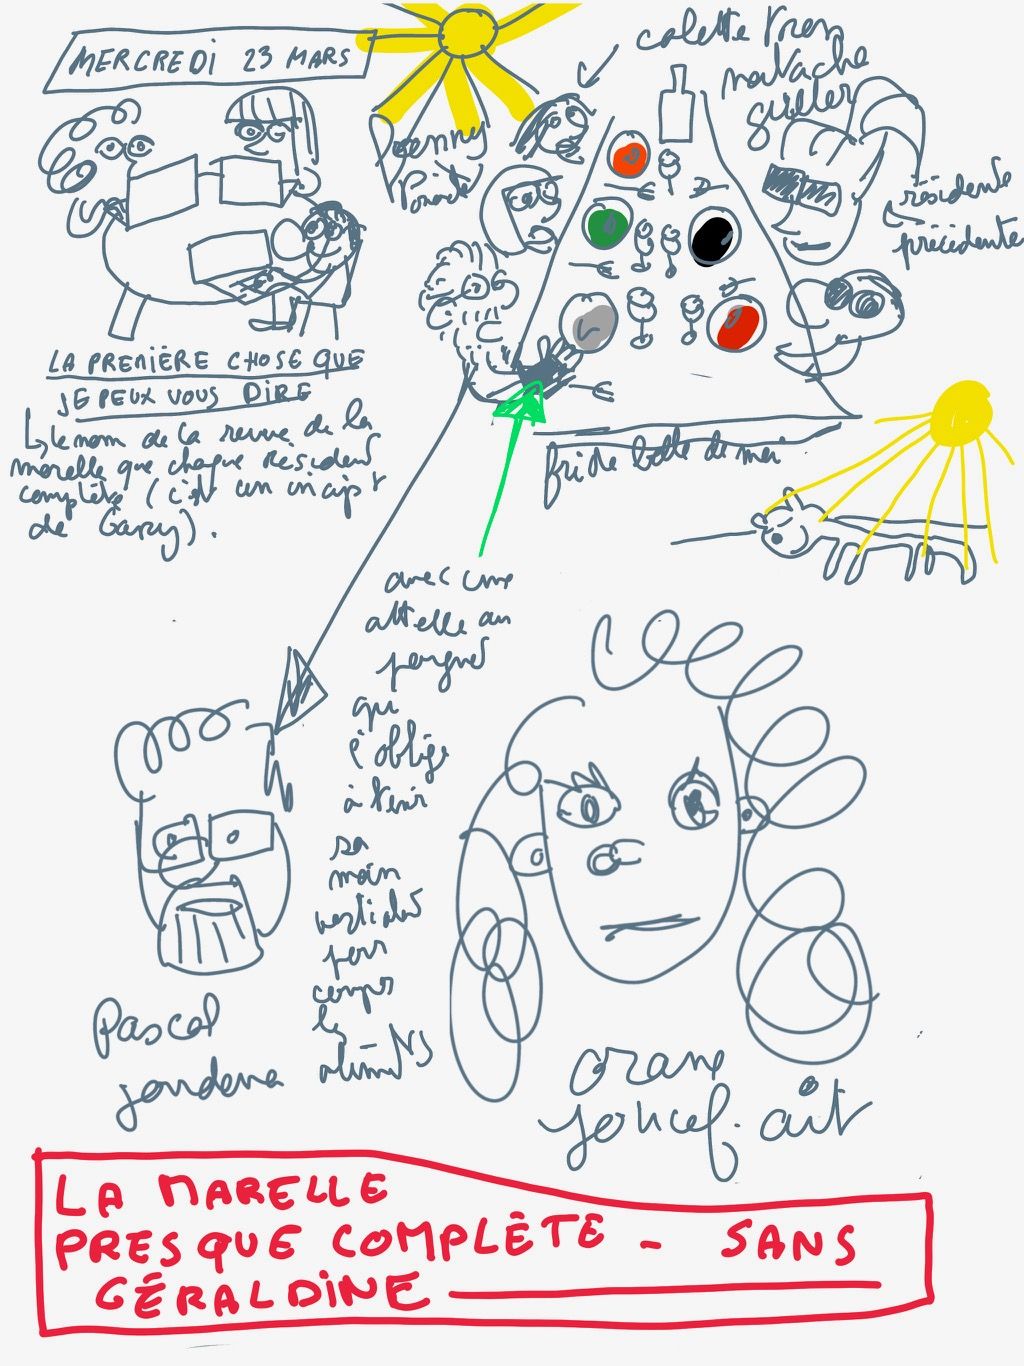 MERCREDI 23 MARS
colette
natacha
guiller
fanny
résidente
précédente
LA PREMIÈRE CHOSE QUE
JE PEUX VOUS DIRE
le nom de la revue de la
marelle que chaque résident
complète (c'est un incipit
de Gary).
friche belle de mai
avec une
attelle au
poignet
qui
l'oblige
à tenir
sa
main
verticale
pour
couper
les
aliments
Pascal
jourdana
LA MARELLE
PRESQUE COMPLÈTE - SANS
GÉRALDINE